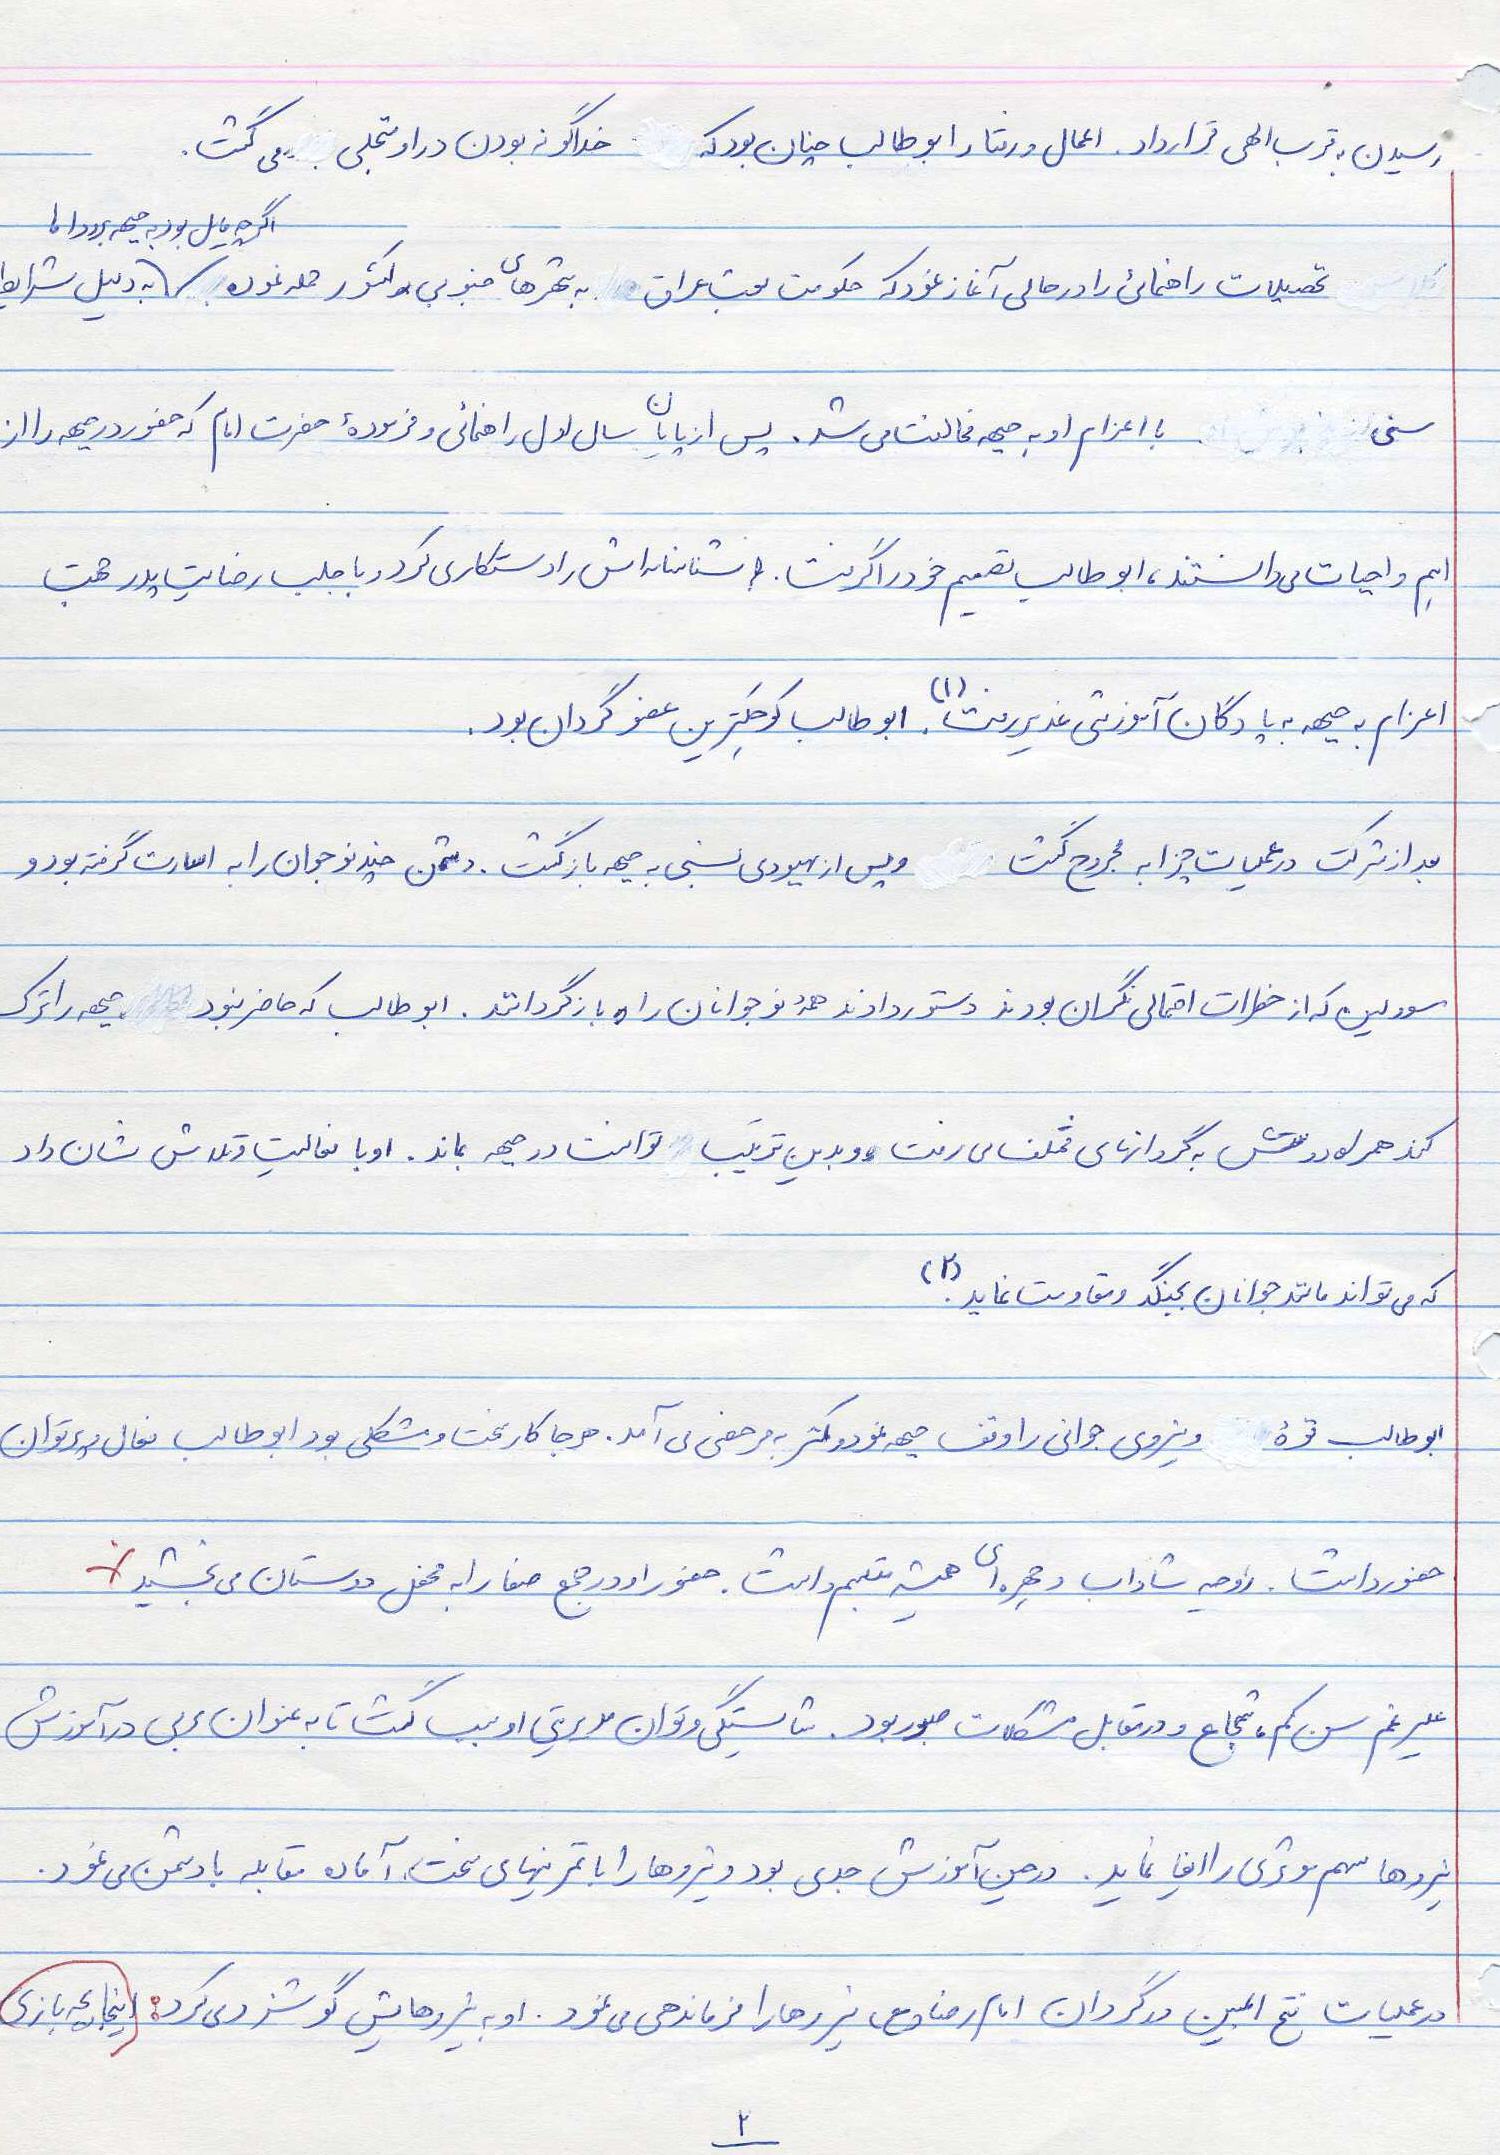 رسیدن به قرب الهی قرار داد. اعمال و رفتار ابوطالب چنان بود که خداگونه بودن در او متجلی می گشت.
اگرچه مایل بود به جبهه برود اما
تحصیلات راهنمائی را در حالی آغاز نمود که حکومت بعث عراق به شهرهای جنوبی کشور حمله نموده بود به دلیل شرایط
سنی با اعزام او به جبهه مخالفت می شد. پس از پایان سال اول راهنمائی و فرمودهٔ حضرت امام که حضور در جبهه را از
اهم واجبات می دانستند، ابوطالب تصمیم خود را گرفت. شناسنامه اش را دستکاری کرد و با جلب رضایت پدر جهت
اعزام به جبهه به پادگان آموزشی غدیر رفت(۱). ابوطالب کوچکترین عضو گردان بود.
بعد از شرکت در عملیات چزابه مجروح گشت و پس از بهبودی نسبی به جبهه بازگشت. دشمن چند نوجوان را به اسارت گرفته بود و
مسولین که از خطرات احتمالی نگران بودند دستور دادند همهٔ نوجوانان را بازگردانند. ابوطالب که حاضر نبود جبهه را ترک
کند همراه دوستش به گردانهای مختلف می رفت و بدین ترتیب توانست در جبهه بماند. او با فعالیت و تلاش نشان داد
که می تواند مانند جوانان بجنگد و مقاومت نماید(۲).
ابوطالب قوهٔ و نیروی جوانی را وقف جبهه نمود و کمتر به مرخصی می آمد. هر جا کار سخت و مشکلی بود ابوطالب فعال و پرتوان
حضور داشت. روحیه شاداب و چهره ای همیشه متبسم داشت. حضور او در جمع صفا را به محفل دوستان می بخشید
علیرغم سن کم، شجاع و در مقابل مشکلات صبور بود. شایستگی و توان مدیریتی او سبب گشت تا به عنوان مربی در آموزش
نیروها سهم موثری را ایفا نماید. در حین آموزش جدی بود و نیروها را با تمرینهای سخت، آماده مقابله با دشمن می نمود.
در عملیات فتح المبین در گردان امام رضا (ع) نیروها را فرماندهی می نمود. او به نیروهایش گوشزد می کرد: اینجا بچه بازی
۲